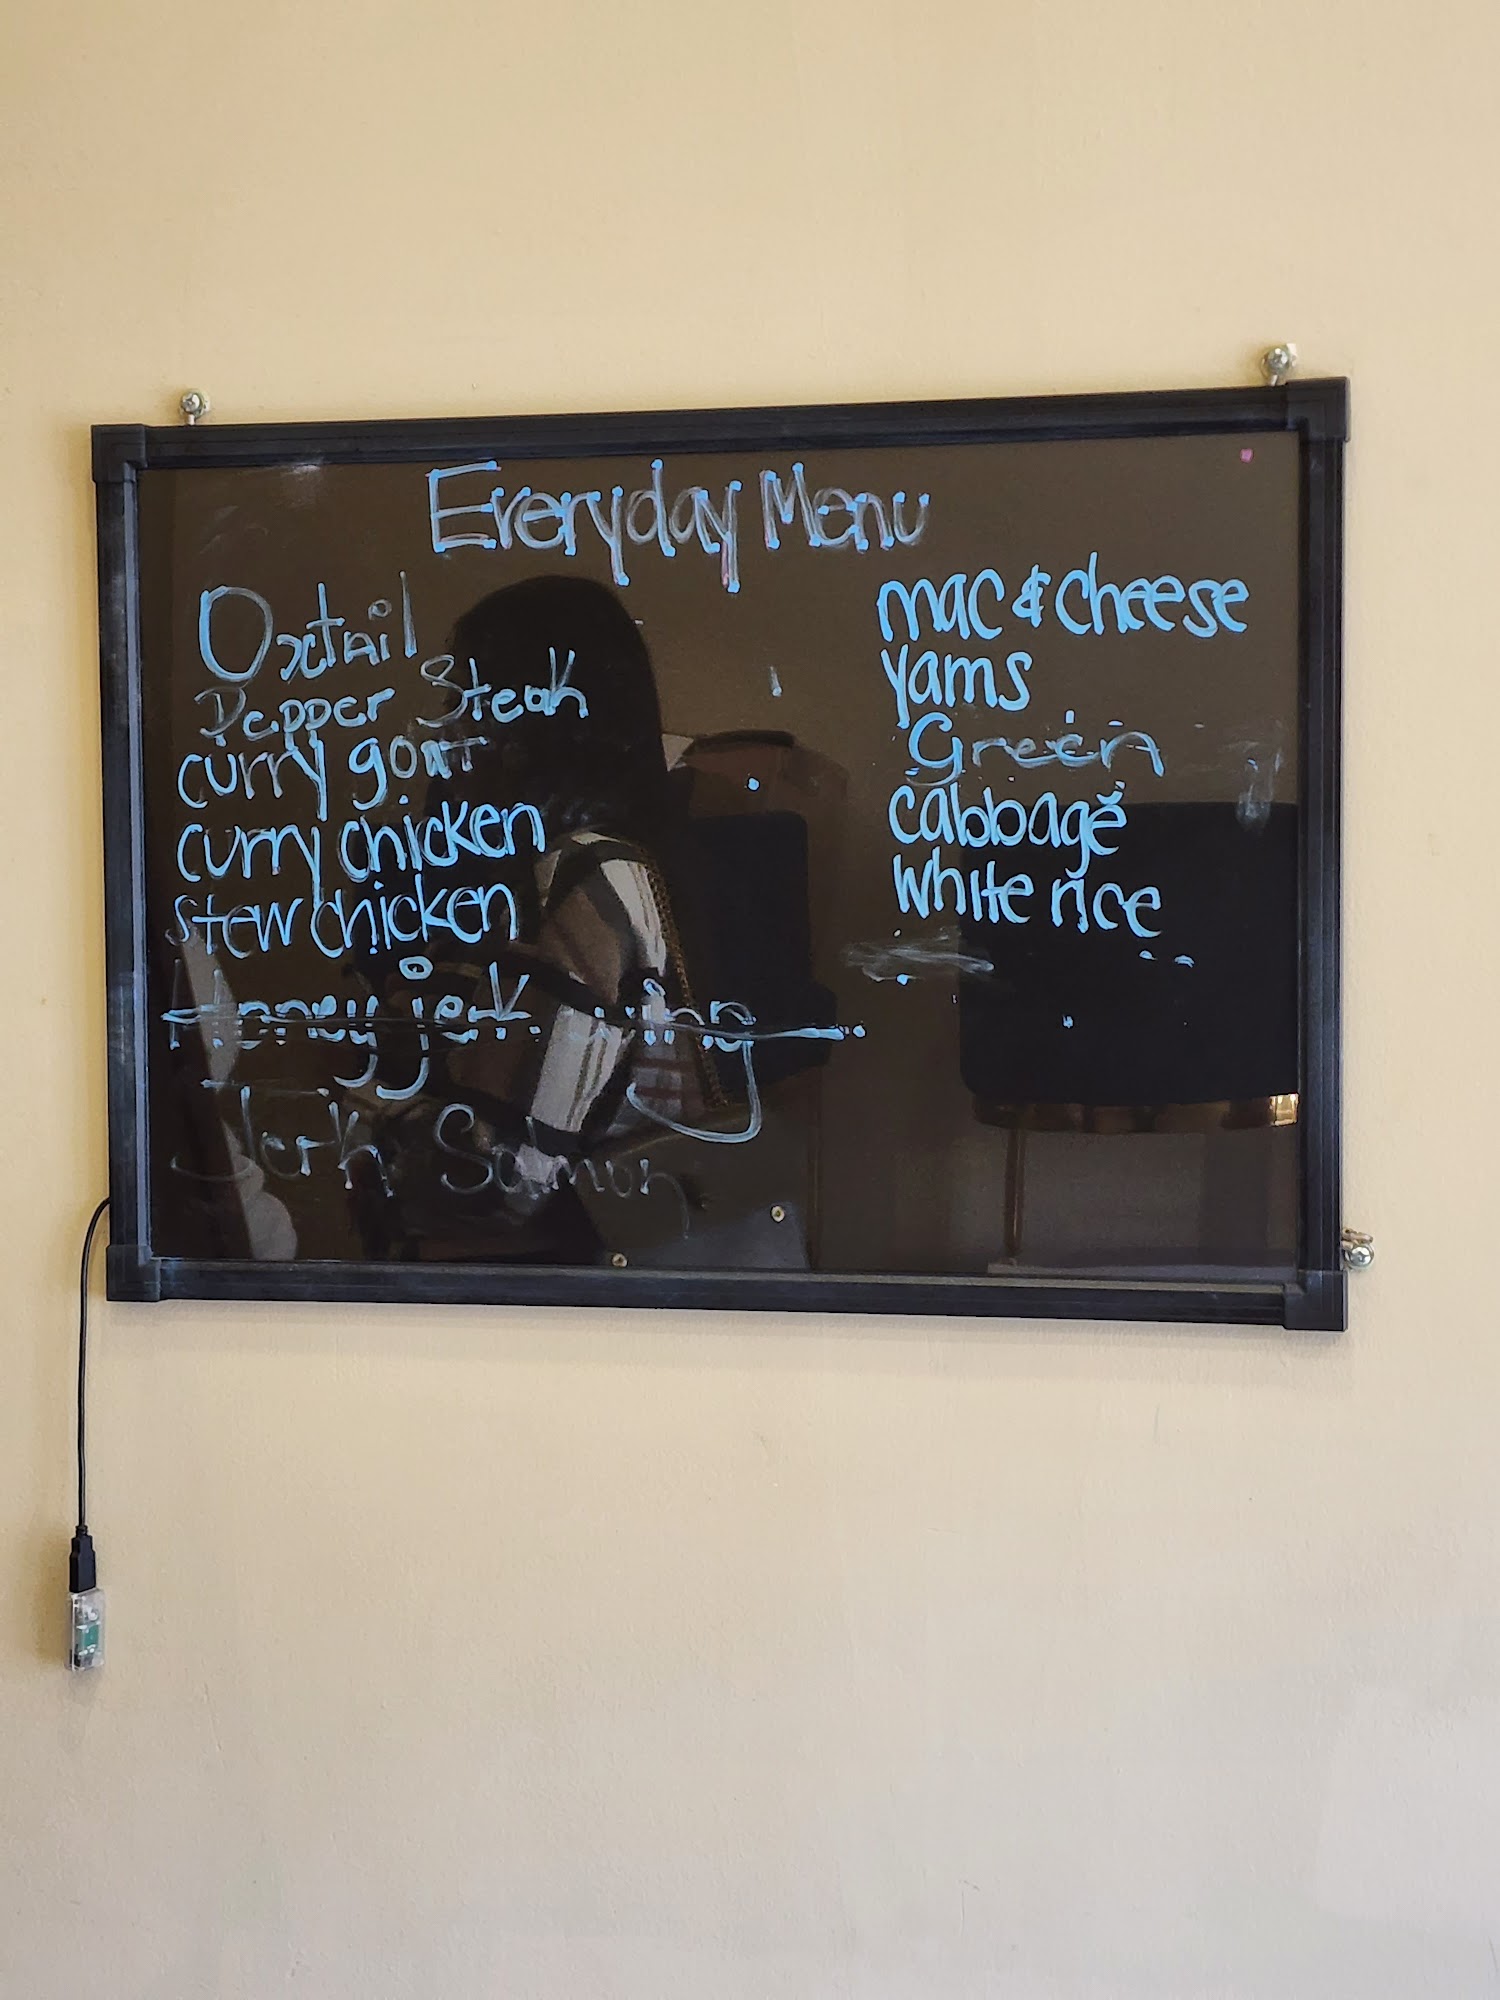 Everyday Menu
Oxtail
Pepper Steak
curry goat
curry chicken
stew chicken
Honey jerk wing
Jerk Salmon
mac & cheese
yams
Green
cabbage
white rice